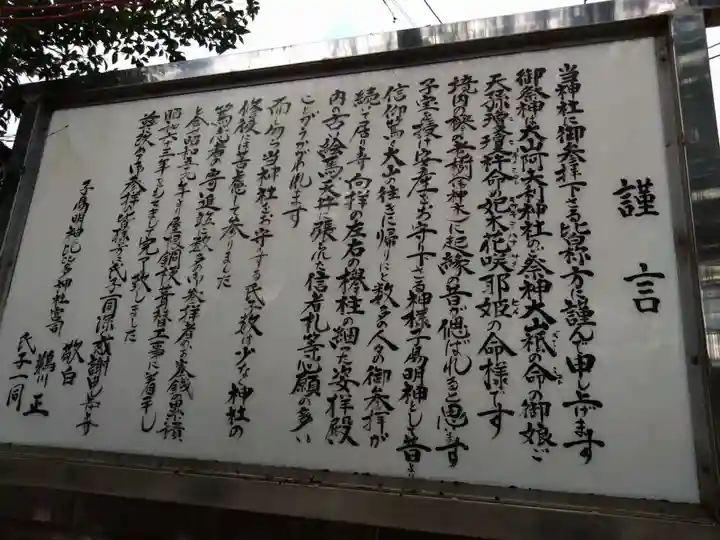 謹言
当神社に御参拝下さる皆様方に謹んで申し上げます
御祭神は大山阿夫利神社の祭神大山祇の命の御娘ご
天孫瓊瓊杵命の妃木花咲耶姫の命様です
境内の
に起縁の昔が偲ばれると思います
子宝を授け安産をお守り下さる神様子易明神とし昔より
信仰篤く大山往きに帰りにと数多の人の御参拝が
続いて居ります向拝の左右の欅柱の細った姿拝殿
内の古絵馬天井に張られた信者札等心願の多い
ことがうかがわれます
而し乍ら当神社をお守りする氏子数は少なく神社の
修復には苦慮して参りました
篤志者の寄進並に数多の御参拝者のお賽銭の累積
昭和六十三年
完了致しました
御参拝の皆様に氏子一同深く感謝申し上げます
子易明神比々多神社宮司 鵜川 正
敬白 氏子一同